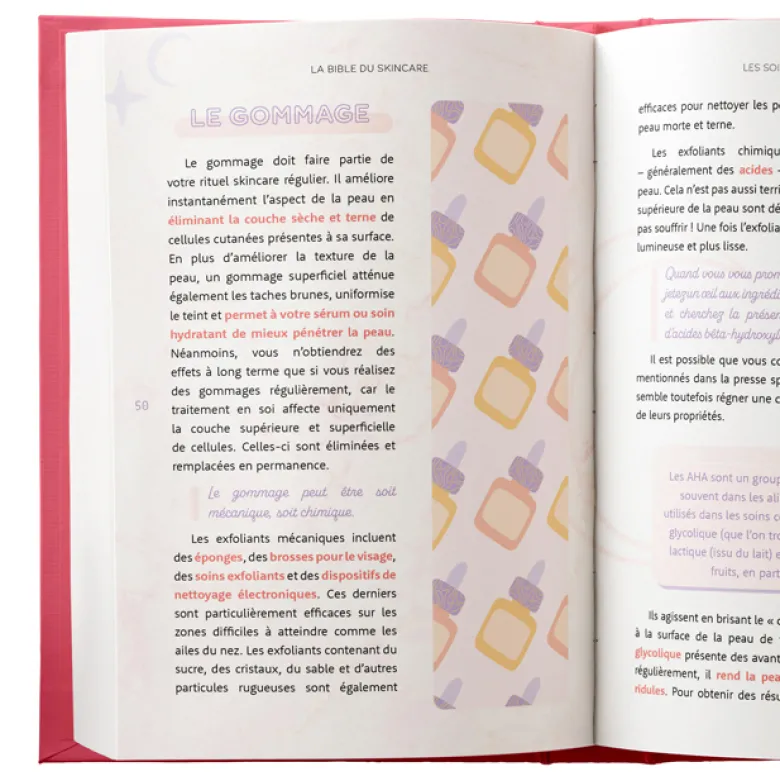 LA BIBLE DU SKINCARE
LE GOMMAGE
Le gommage doit faire partie de
votre rituel skincare régulier. Il améliore
instantanément l'aspect de la peau en
éliminant la couche sèche et terne de
cellules cutanées présentes à sa surface.
En plus d'améliorer la texture de la
peau, un gommage superficiel atténue
également les taches brunes, uniformise
le teint et permet à votre sérum ou soin
hydratant de mieux pénétrer la peau.
Néanmoins, vous n'obtiendrez des
effets à long terme que si vous réalisez
des gommages régulièrement, car le
traitement en soi affecte uniquement
la couche supérieure et superficielle
de cellules. Celles-ci sont éliminées et
remplacées en permanence.
50
Le gommage peut être soit
mécanique, soit chimique.
Les exfoliants mécaniques incluent
des éponges, des brosses pour le visage,
des soins exfoliants et des dispositifs de
nettoyage électroniques. Ces derniers
sont particulièrement efficaces sur les
zones difficiles à atteindre comme les
ailes du nez. Les exfoliants contenant du
sucre, des cristaux, du sable et d'autres
particules rugueuses sont également
LES SOI
efficaces pour nettoyer les p
peau morte et terne.
Les exfoliants chimiqu
– généralement des acides -
peau. Cela n'est pas aussi terri
supérieure de la peau sont dé
pas souffrir ! Une fois l'exfolia
lumineuse et plus lisse.
Quand vous vous prom
jetez un œil aux ingrédi
et cherchez la présen
d'acides bêta-hydroxyl
Il est possible que vous co
mentionnés dans la presse sp
semble toutefois régner une c
de leurs propriétés.
Les AHA sont un group
souvent dans les ali
utilisés dans les soins c
glycolique (que l'on tro
lactique (issu du lait) e
fruits, en part
Ils agissent en brisant le « c
à la surface de la peau de
glycolique présente des avant
régulièrement, il rend la pea
ridules. Pour obtenir des résu